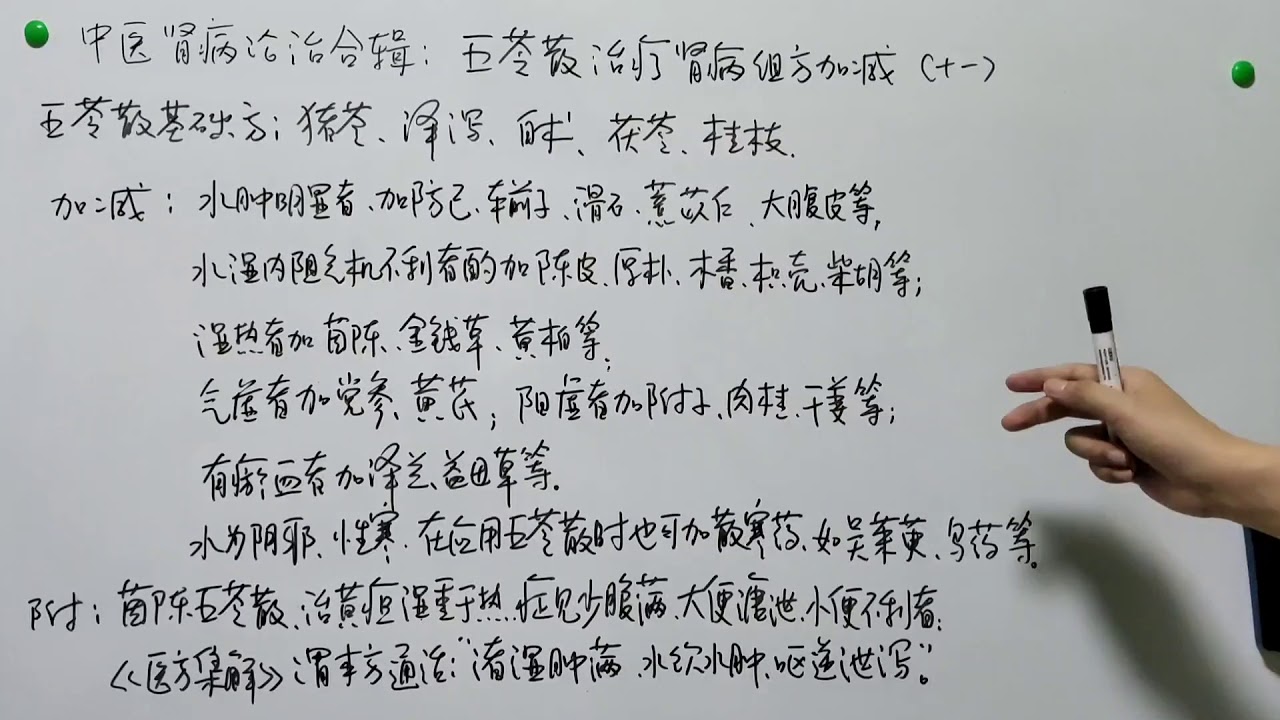 中医肾病论治合辑：五苓散治疗肾病组方加减（十一）
五苓散基础方：猪苓、泽泻、白术、茯苓、桂枝.
加减：水肿明显者、加防己、车前子、滑石、薏苡仁、大腹皮等,
水湿内阻气机不利者酌加陈皮、厚朴、木香、枳壳、柴胡等；
湿热者加茵陈、金钱草、黄柏等；
气虚者加党参、黄芪；阳虚者加附子、肉桂、干姜等；
有瘀血者加泽兰、益母草等.
水为阴邪、性寒.在应用五苓散时也可加散寒药、如吴茱萸、乌药等。
附：茵陈五苓散、治黄疸湿重于热.症见少腹满、大便溏泄、小便不利者；
《医方集解》谓本方通治：“诸湿肿满、水饮水肿、呕逆泄泻”。